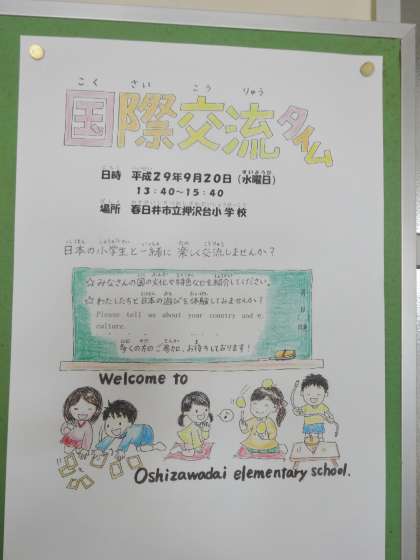 こくさいこうりゅう
国際交流タイム
日時 平成29年9月20日(水曜日)
13:40~15:40
場所 春日井市立押沢台小学校
日本の小学生と一緒に楽しく交流しませんか?
☆みなさんの国の文化や特色などを紹介してください。
☆わたしたちと日本の遊びを体験してみませんか?
Please tell us about your country and
culture.
多くの方のご参加、お待ちしております!
Welcome to
Oshizawadai elementary school.